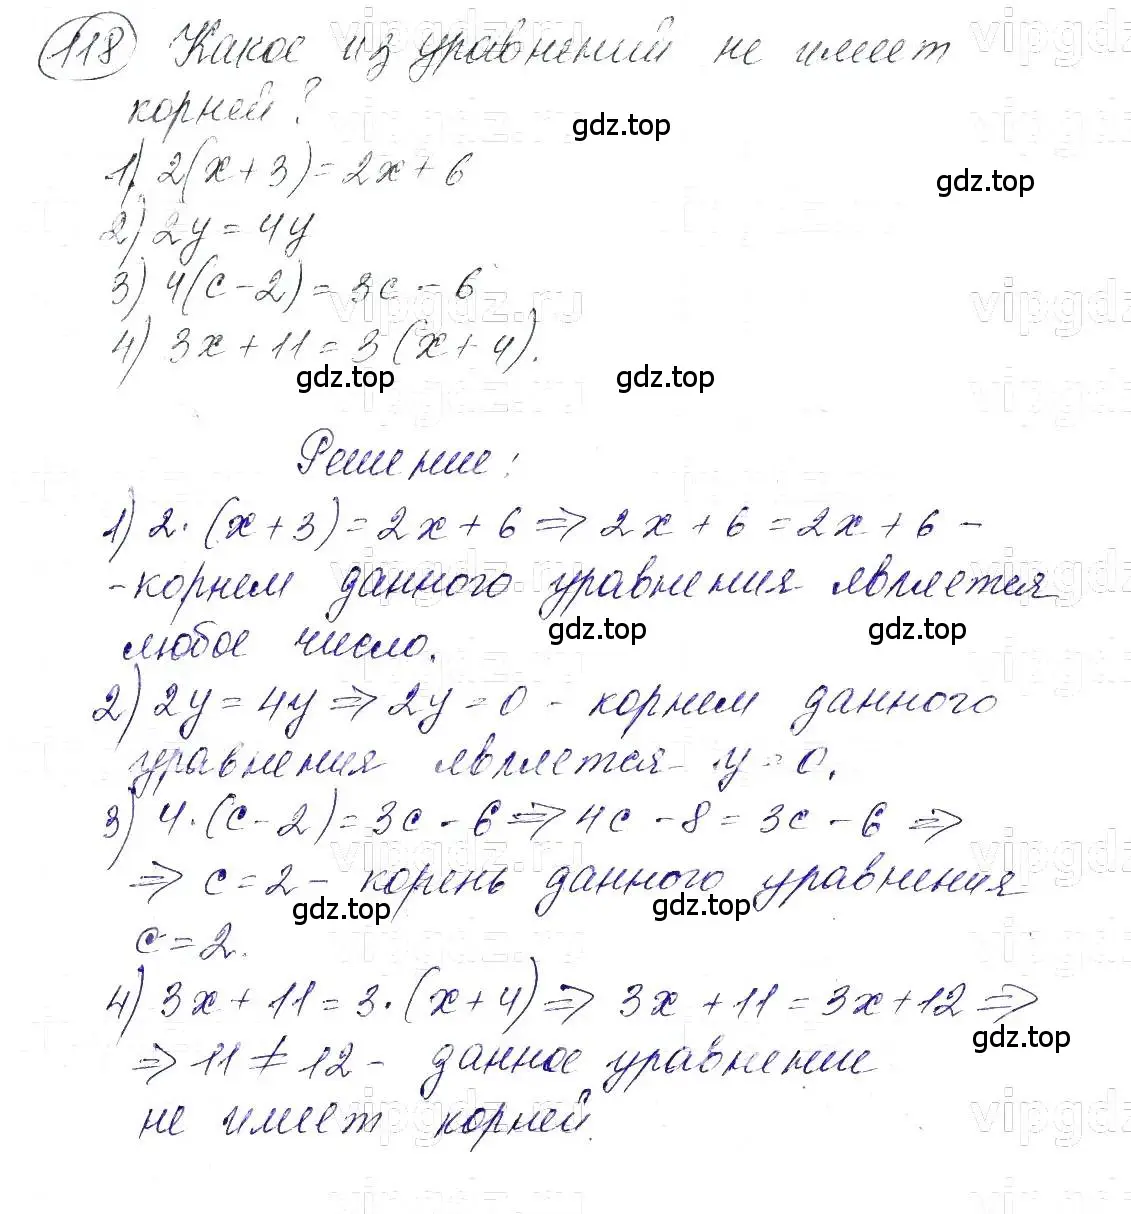 118 Какое из уравнений не имеет
корней?
1) 2(x+3)=2x+6
2) 2y=4y
3) 4(c-2)=3c-6
4) 3x+11=3(x+4).
Решение:
1) 2·(x+3)=2x+6⇒2x+6=2x+6-
-корнем данного уравнения является
любое число.
2) 2y=4y⇒2y=0 - корнем данного
уравнения является y=0.
3) 4·(c-2)=3c-6⇒4c-8=3c-6⇒
⇒ c=2 - корень данного уравнения
c=2.
4) 3x+11=3·(x+4)⇒ 3x+11=3x+12⇒
⇒ 11≠12 - данное уравнение
не имеет корней.
gdz.top
gdz.top
gdz.top
gdz.top
gdz.top
gdz.top
gdz.top
gdz.top
gdz.top
vipgdz.ru
vipgdz.ru
vipgdz.ru
vipgdz.ru